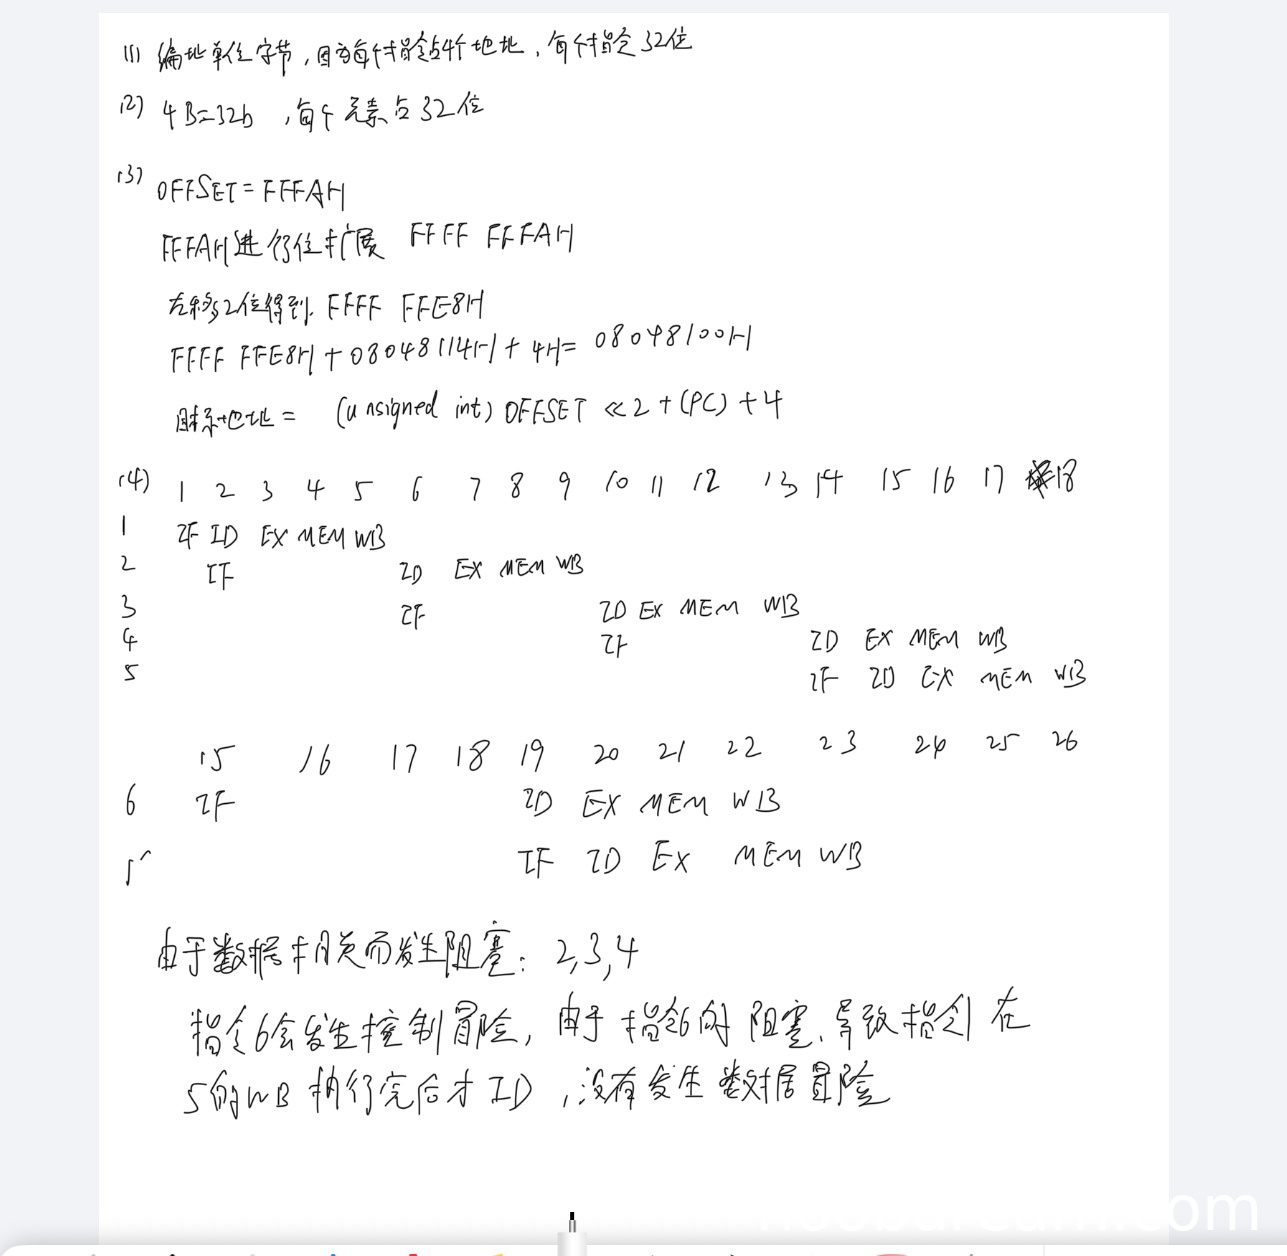 (1) 编址单位字节,因为每个指令占4个地址,每个指令32位
(2) 4B=32b ,每个元素占32位
(3) OFFSET=FFFAH
FFFAH进行位扩展 FFFF FFFAH
左移2位得到 FFFF FFE8H
FFFF FFE8H + 08048114H + 4H = 08048100H
目标地址 = (unsigned int) OFFSET << 2 + (PC) + 4
(4) 1 2 3 4 5 6 7 8 9 10 11 12 13 14 15 16 17 18
1 IF ID EX MEM WB
2 IF ID EX MEM WB
3 IF ID EX MEM WB
4 IF ID EX MEM WB
5 IF ID EX MEM WB
15 16 17 18 19 20 21 22 23 24 25 26
6 IF ID EX MEM WB
1' IF ID EX MEM WB
由于数据相关而发生阻塞: 2,3,4
指令6会发生控制冒险, 由于指令6的阻塞,导致指令1在
5的WB执行完后才ID ,没有发生数据冒险